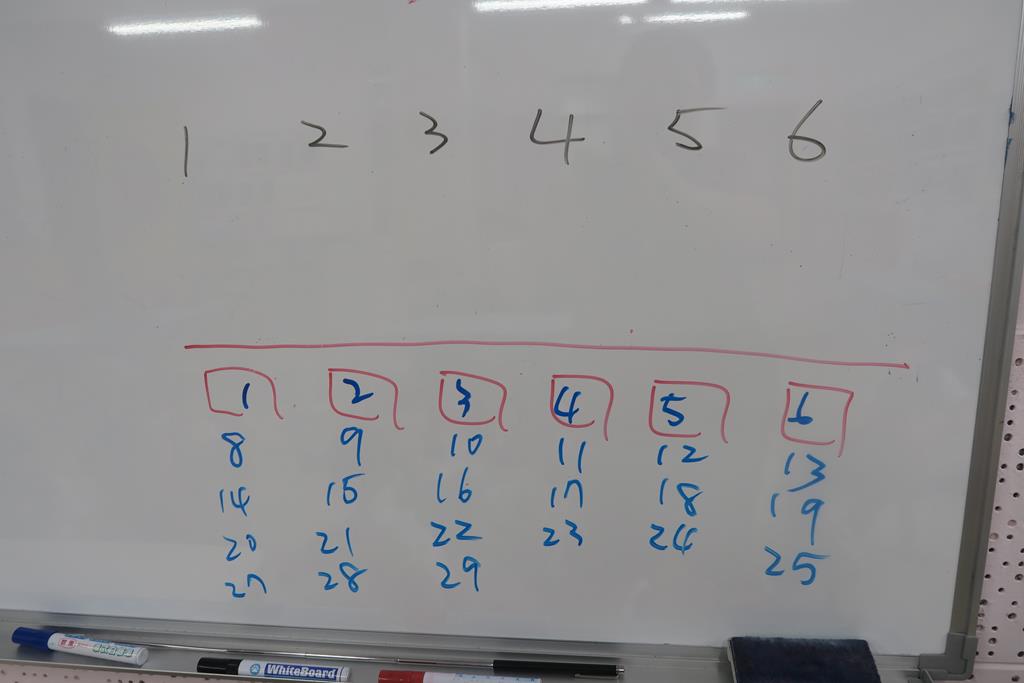 1 2 3 4 5 6
1 2 3 4 5 6
8 9 10 11 12 13
14 15 16 17 18 19
20 21 22 23 24 25
27 28 29
WhiteBoard